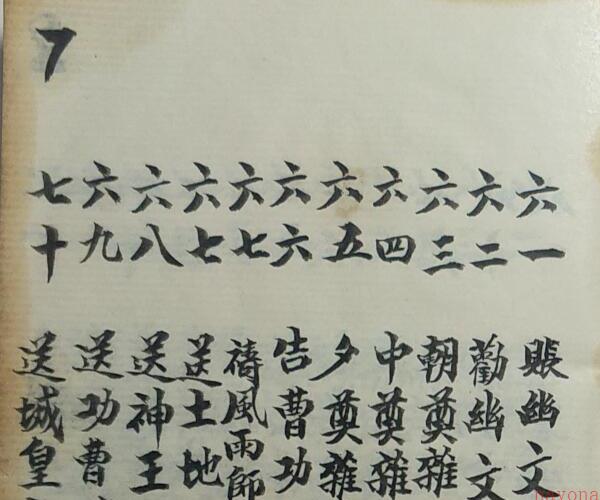 7
六一 賬幽文
六二 勸幽文
六三 朝奠雜
六四 中奠雜
六五 夕奠雜
六六 告曹功
六七 禱風雨師
六七 送土地
六八 送神王
六九 送功曹
七十 送城皇
nayona